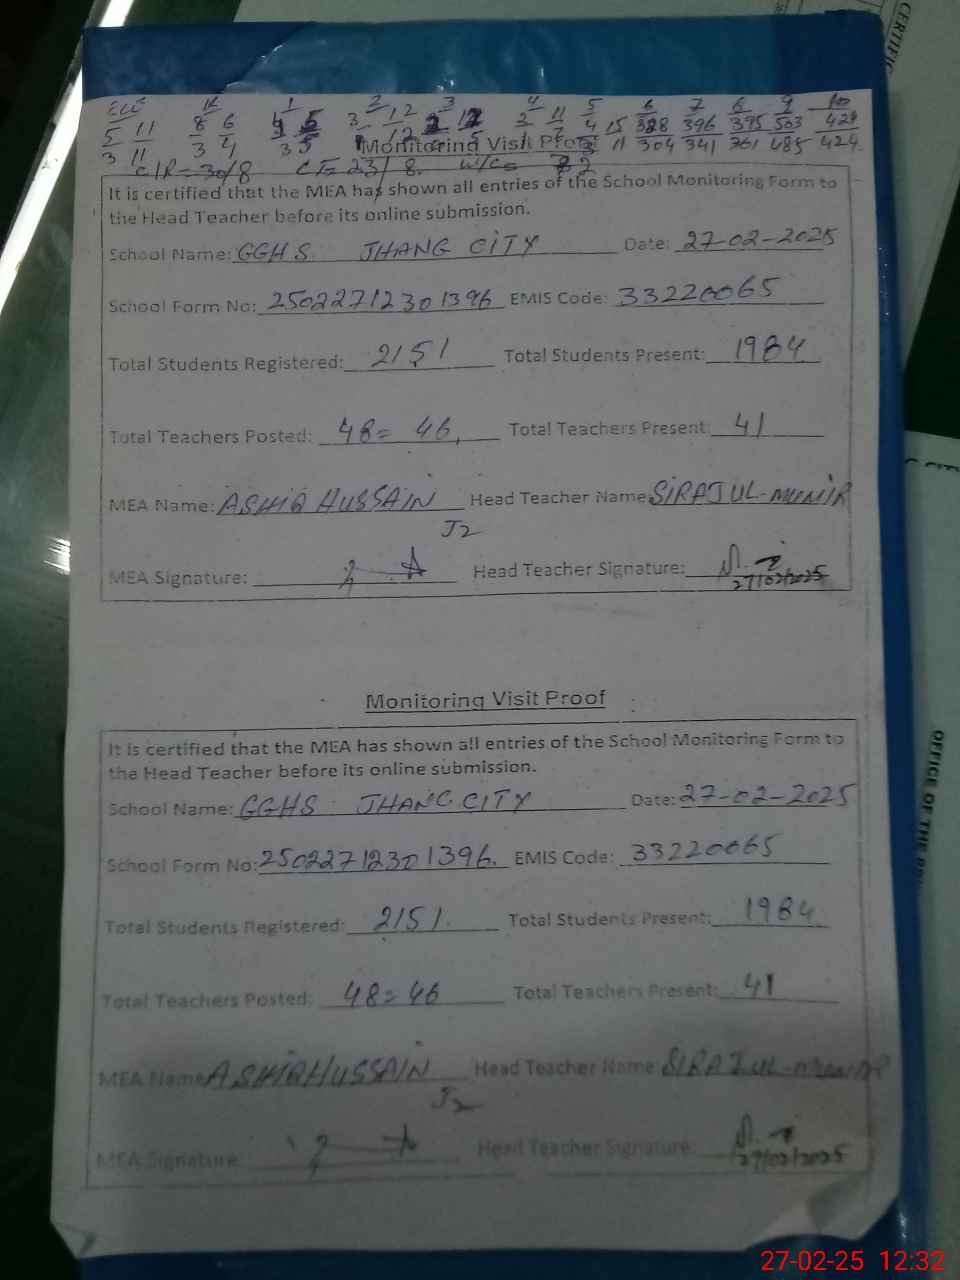 ECE K 1 2 3 4 5 6 7 8 9 10
5 11 8 6 4 5 3 12 2 12 2 11 4 15 328 396 395 503 424
3 11 3 4 3 5 12 5 7 11 304 341 361 485 424
Monitoring Visit Proof
C/R = 30/8 CT= 23/8. W/Cs
It is certified that the MEA has shown all entries of the School Monitoring Form to
the Head Teacher before its online submission.
School Name: GGHS JHANG CITY Date: 27-02-2025
School Form No: 25022712301396 EMIS Code: 33220065
Total Students Registered: 2151 Total Students Present: 1984
Total Teachers Posted: 48= 46, Total Teachers Present: 41
MEA Name: ASHIQ HUSSAIN Head Teacher Name SIRAJ UL-MUNIR
J2
MEA Signature: Head Teacher Signature:
27/02/2025
Monitoring Visit Proof
It is certified that the MEA has shown all entries of the School Monitoring Form to
the Head Teacher before its online submission.
School Name: GGHS JHANG CITY Date: 27-02-2025
School Form No: 25022712301396. EMIS Code: 33220065
Total Students Registered: 2151. Total Students Present: 1984
Total Teachers Posted: 48=46 Total Teachers Present: 41
MEA Name ASHIQ HUSSAIN Head Teacher Name SIRAJ UL-MUNIR
J2
MEA Signature: Head Teacher Signature:
27/02/2025
OFFICE OF THE
27-02-25 12:32